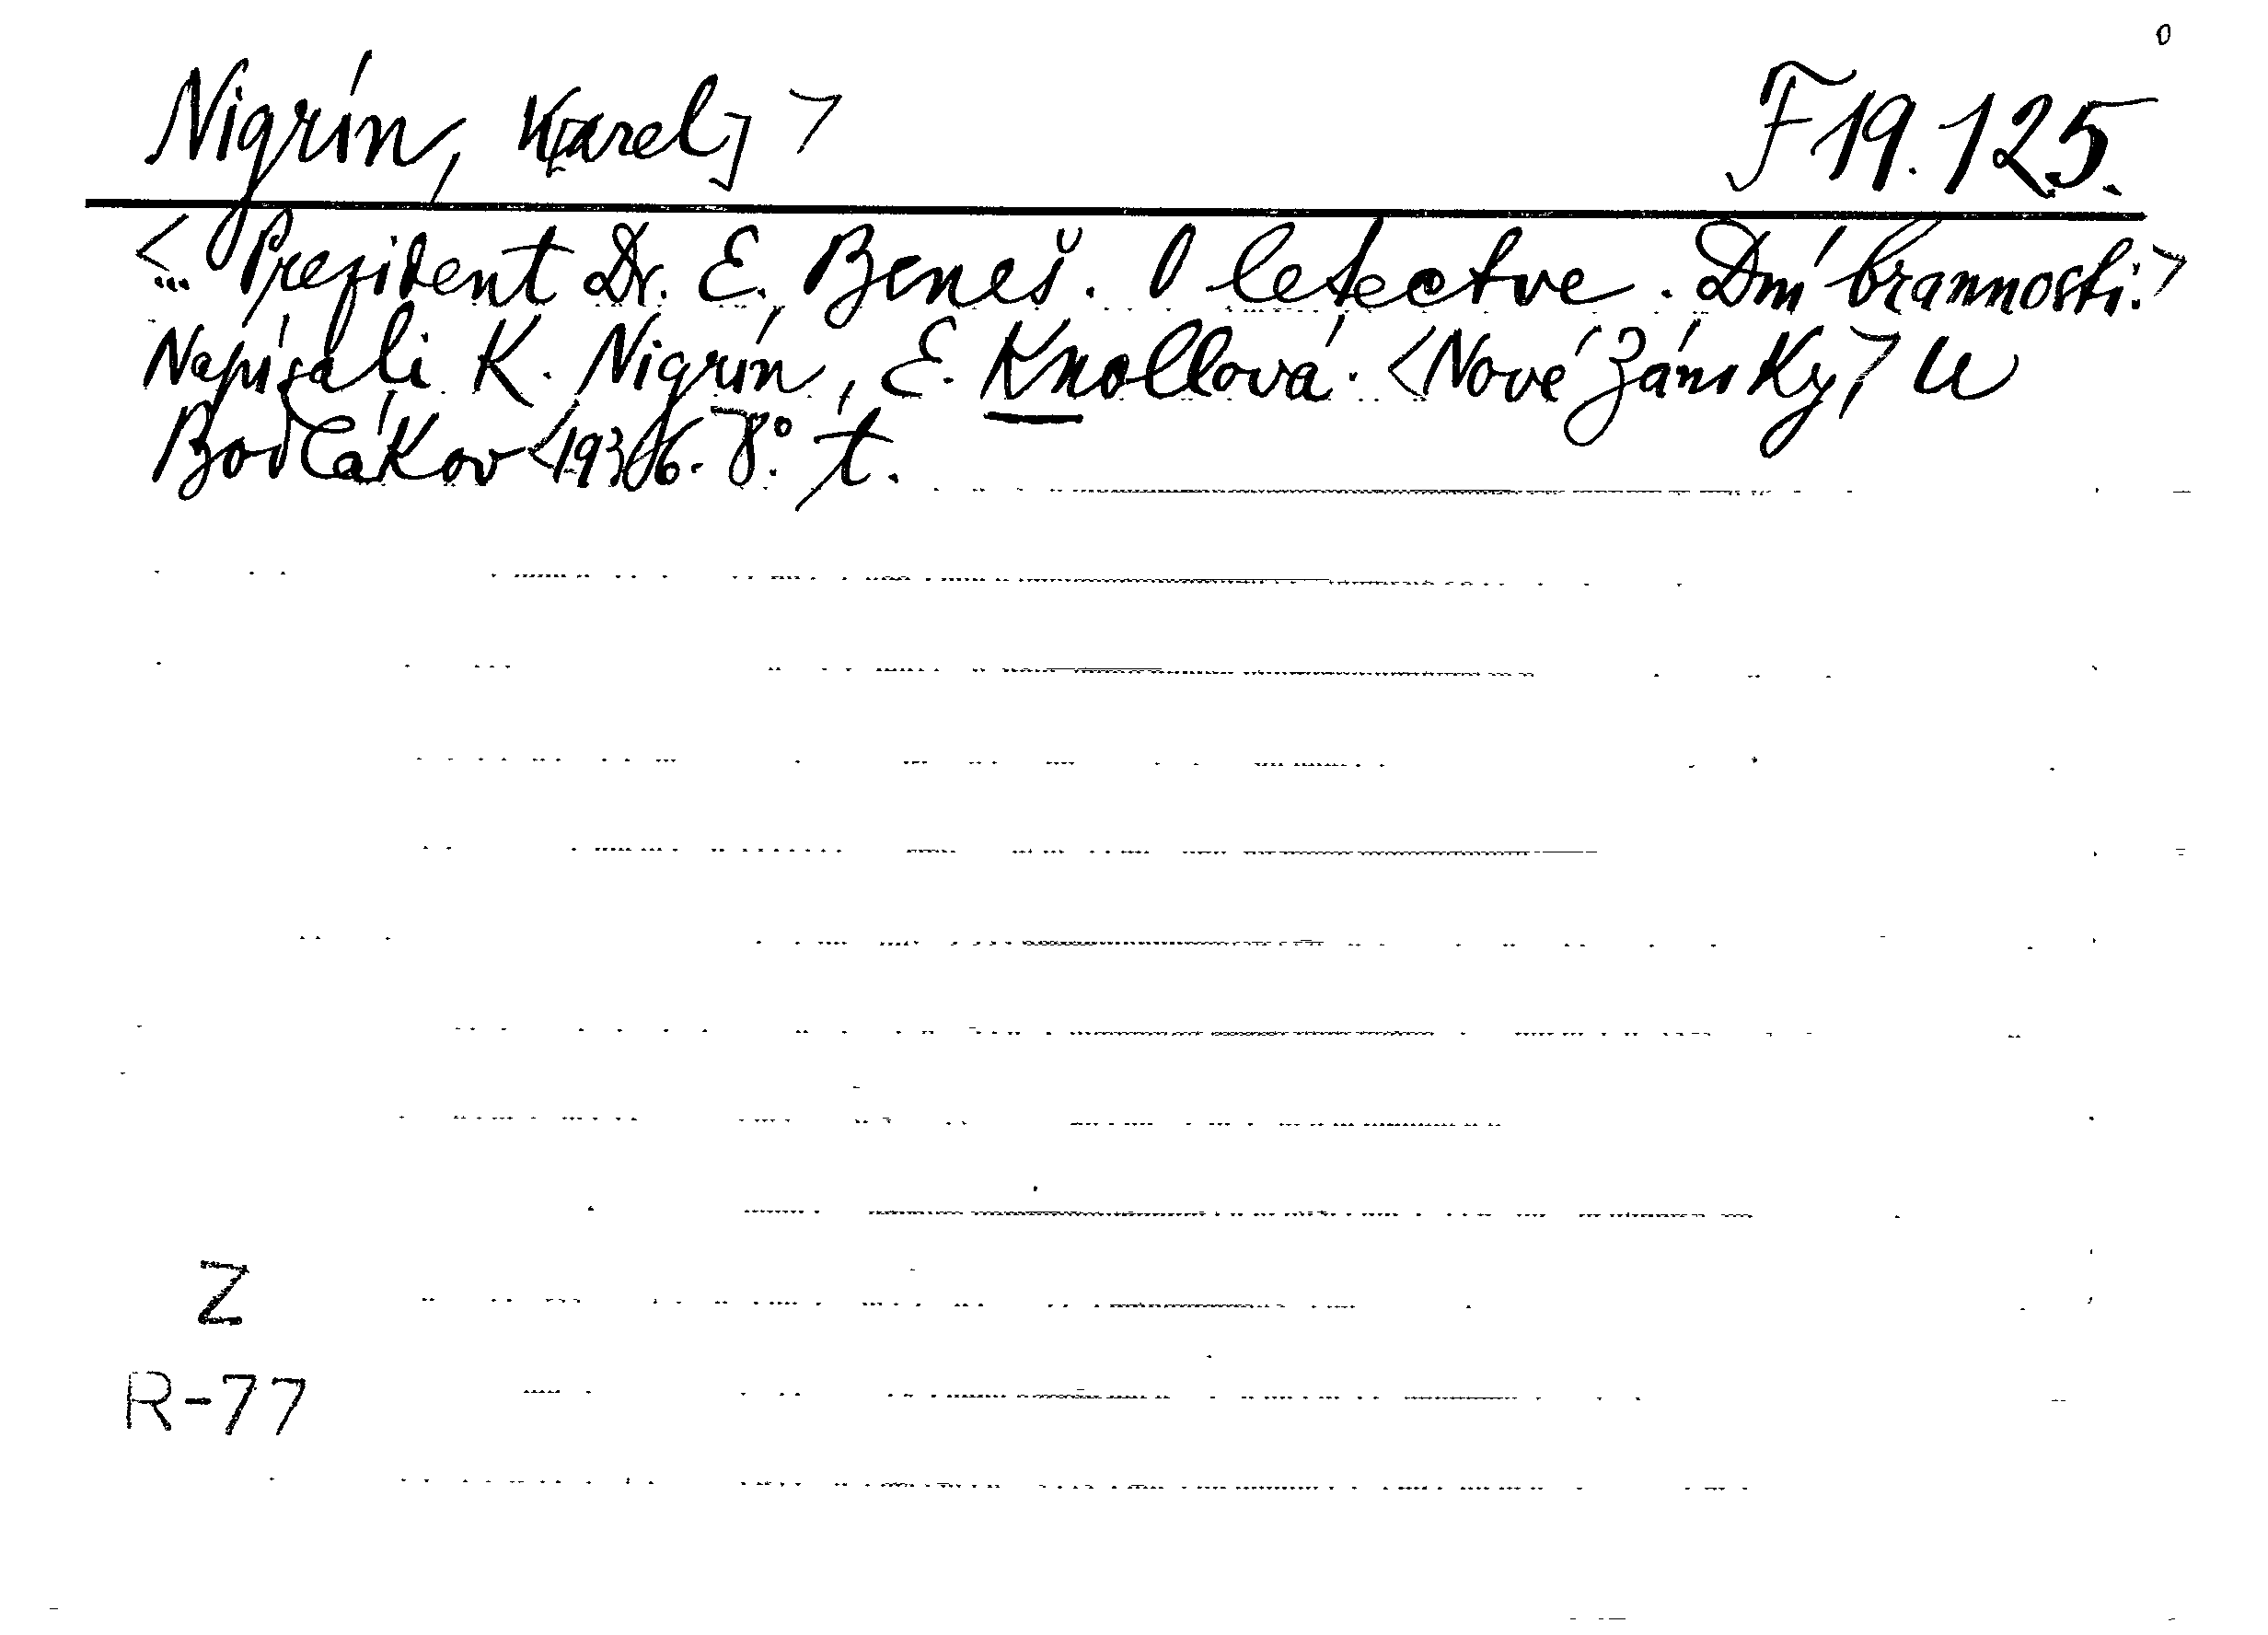 Nigrín, K[arel] > F 19.125.
<... Prezident Dr. E. Beneš. O letectve. Dni brannosti.>
Napísali K. Nigrín, E. Knollová. <Nové Zámky,> U
Bodlákov <1936. 8° t.
Z
R-77